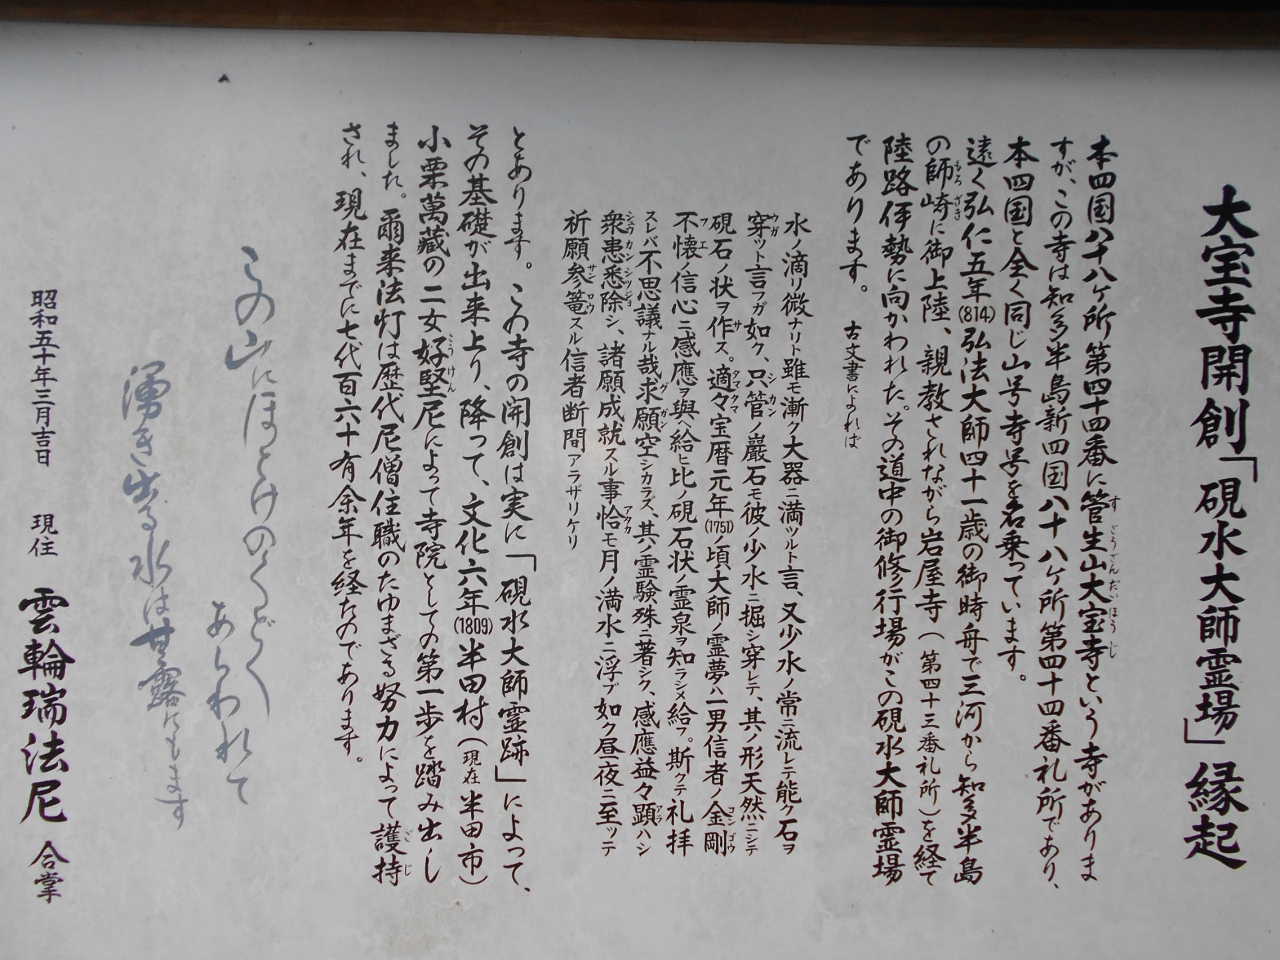 大宝寺開創「硯水大師霊場」縁起
本四国八十八ヶ所第四十四番に管生山大宝寺という寺がありま
すが、この寺は知多半島新四国八十八ヶ所第四十四番札所であり、
本四国と全く同じ山号寺号を名乗っています。
遠く弘仁五年(814)弘法大師四十一歳の御時舟で三河から知多半島
の師崎に御上陸、親教されながら岩屋寺(第四十三番礼所)を経て
陸路伊勢に向かわれた。その道中の御修行場がこの硯水大師霊場
であります。 古文書によれば
水ノ滴リ微ナリト雖モ漸ク大器ニ満ツルト言、又少水ノ常ニ流レテ能ク石ヲ
穿ツト言フガ如ク、只管ノ巖石モ彼ノ少水ニ掘シ穿レテ、其ノ形天然ニシテ
硯石ノ状ヲ作ス。適々宝暦元年(1751)ノ頃大師ノ霊夢ハ一男信者ノ金剛
不懐ノ信心ニ感應ヲ與ヘ給ヒ比ノ硯石状ノ霊泉ヲ知ラシメ給フ。斯クテ礼拝
スレバ不思議ナル哉求願空シカラズ、其ノ霊験殊ニ著シク、感應益々顕ハシ
衆患悉除シ、諸願成就スル事恰モ月ノ満水ニ浮ブ如ク昼夜ニ至ッテ
祈願参篭スル信者断間アラザリケリ
とあります。この寺の開創は実に「硯水大師霊跡」によって、
その基礎が出来上り、降って、文化六年(1809)半田村(現在半田市)
小栗萬藏の二女好堅尼によって寺院としての第一歩を踏み出し
ました。爾来法灯は歴代尼僧住職のたゆまざる努力によって護持
され、現在までに七代百六十有余年を経たのであります。
この山にほとけのくどく
あらわれて
湧き出る水は甘露にもます
昭和五十年三月吉日 現住 雲輪瑞法尼 合掌